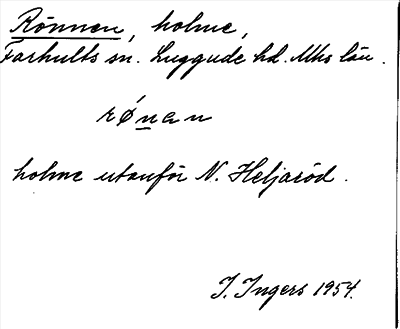 Rönnen, holme,
Farhults sn. Luggude hd. Mhs län.
rǿnan
holme utanför N. Heljaröd.
I. Ingers 1954.